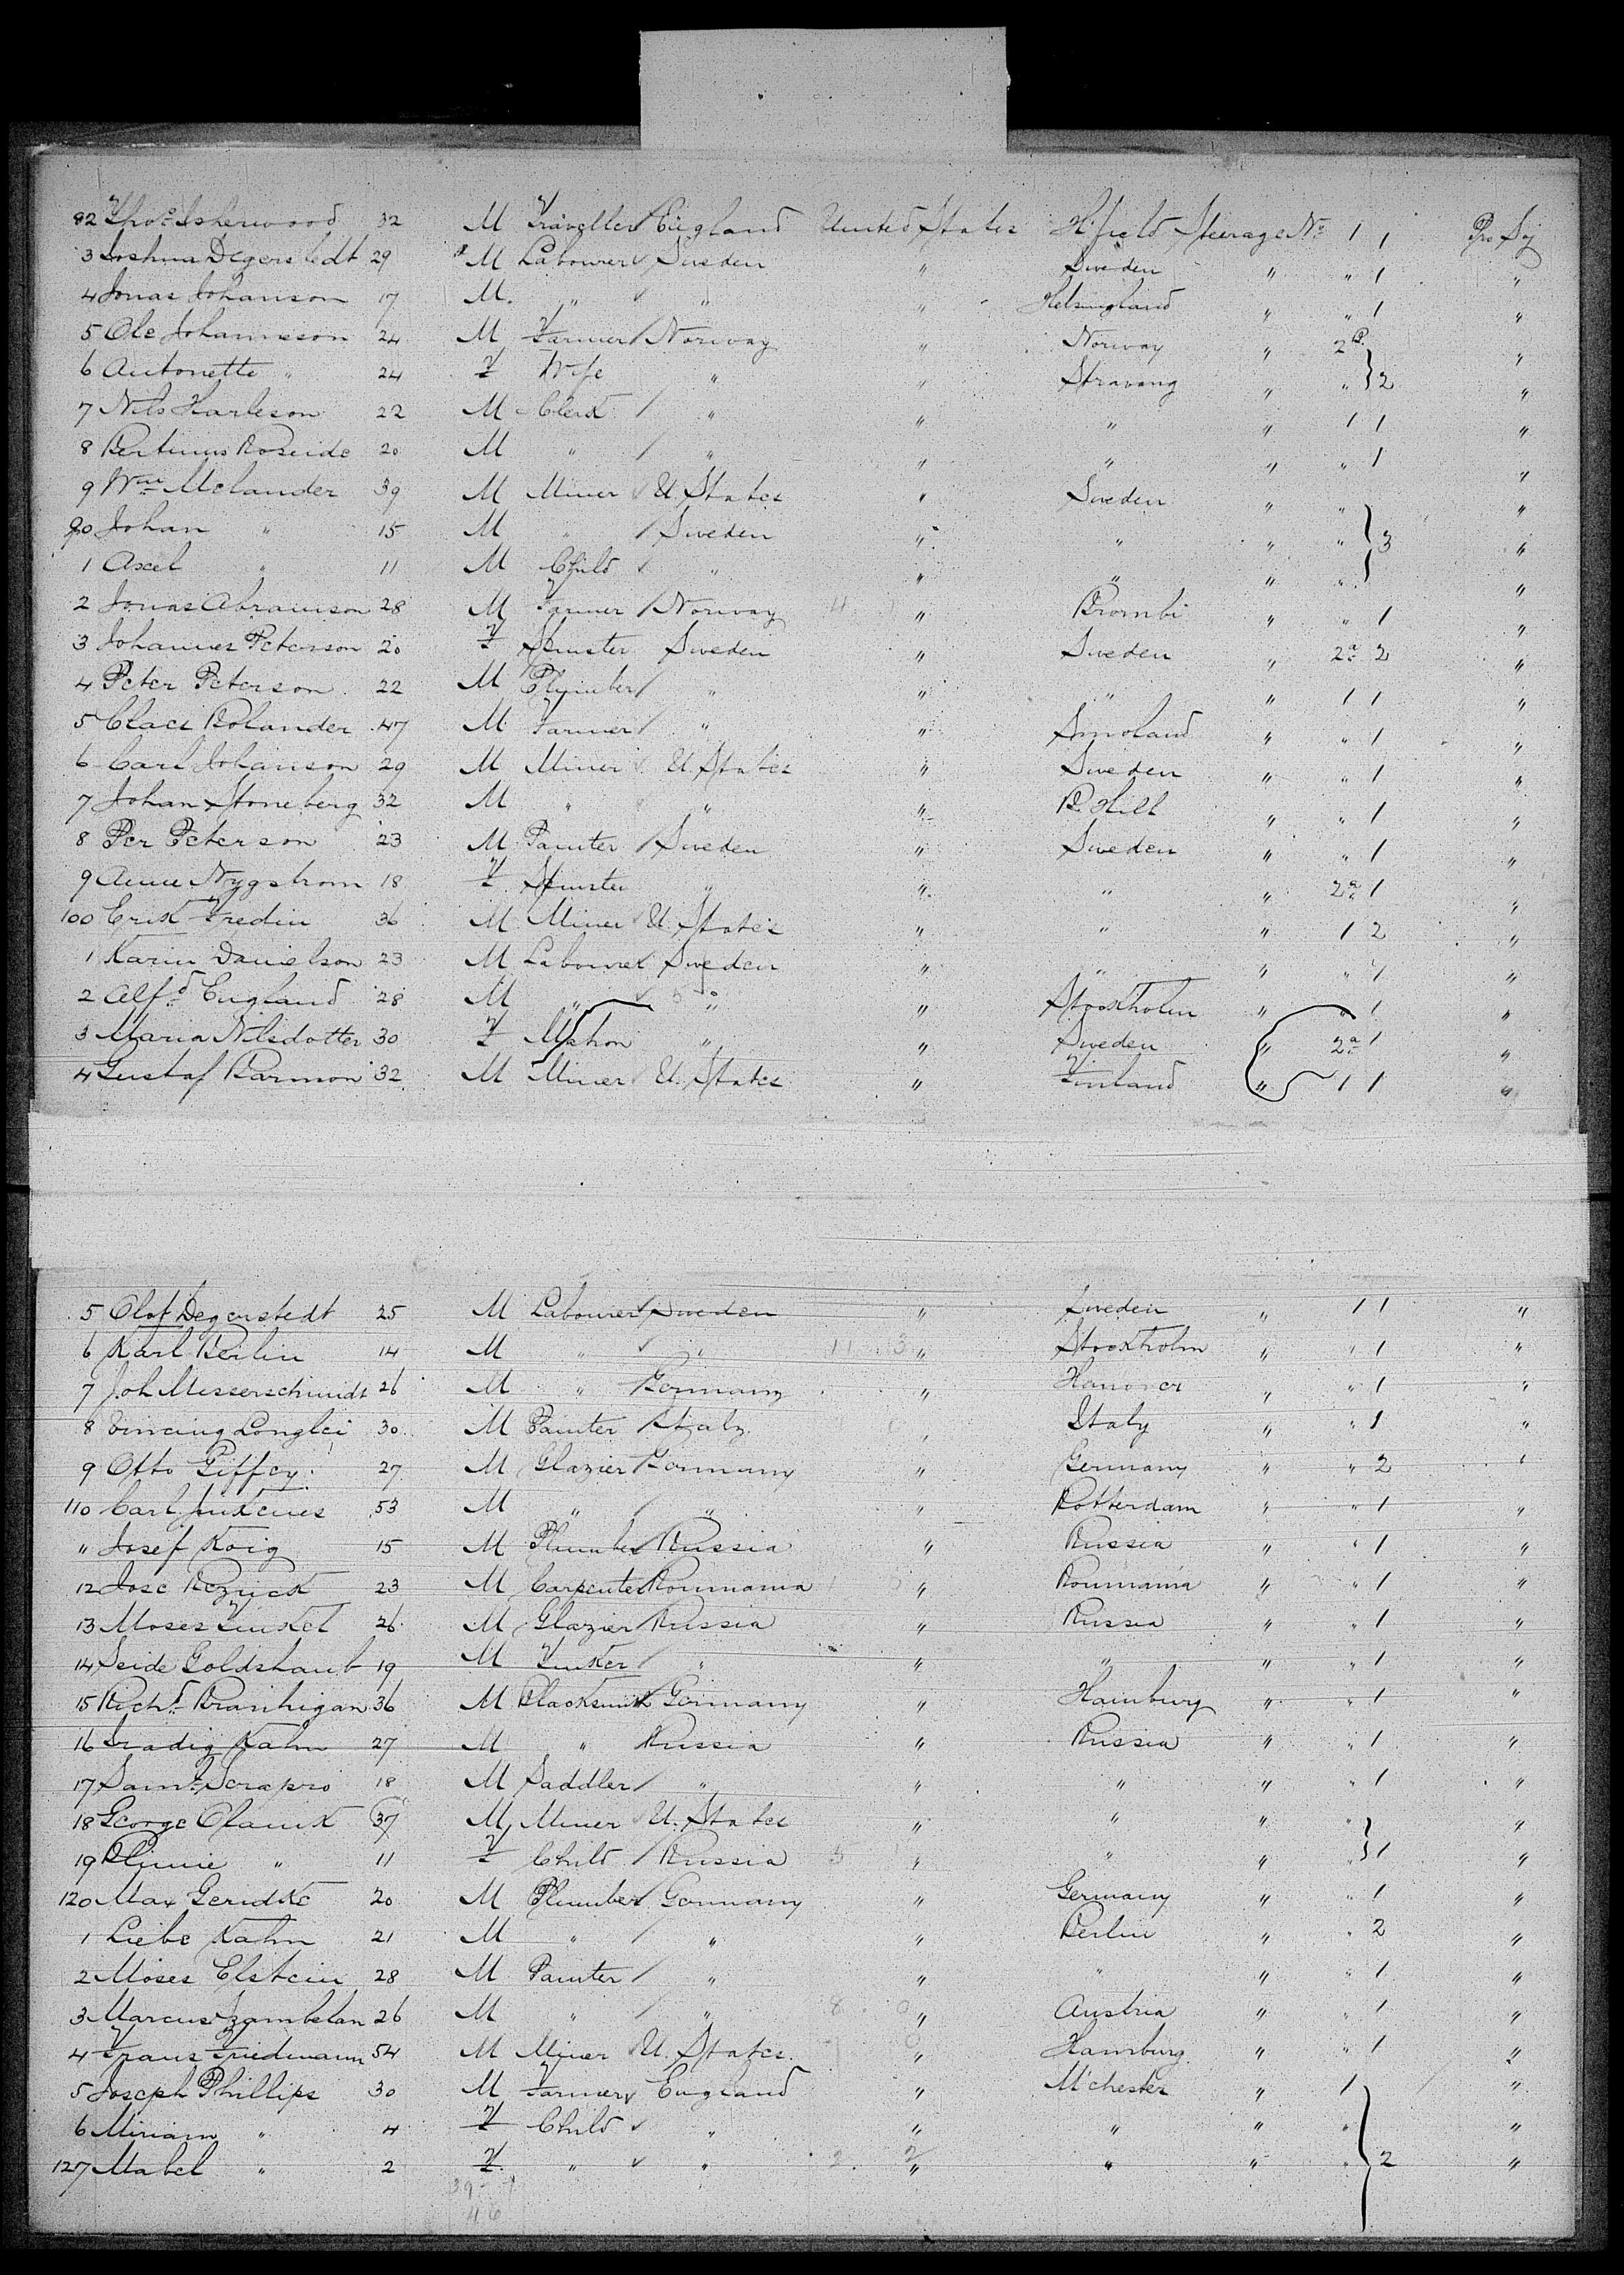 82 Thos Isherwood 32 M Traveller England United States H.field Steerage No 1 1 Pro Soj
3 Joshua Degerstedt 29 M Labourer Sweden " Sweden " " 1 "
4 Jonas Johanson 17 M. " " " Helsingland " " 1 "
5 Ole Johanneson 24 M Farmer Norway " Norway " 2a "
6 Antonette " 24 F Wife " " Stravang " " 2 "
7 Nils Harleson 22 M Clerk " " " " 1 1 "
8 Bertinus Roseide 20 M " " " " " " 1 "
9 Wm Melander 39 M Miner U. States " Sweden " " "
90 Johan " 15 M " Sweden " " " " 3 "
1 Axel " 11 M Child " " " " " "
2 Jonas Abramson 28 M Farmer Norway " Brombi " " 1 "
3 Johannes Peterson 20 F Spinster Sweden " Sweden " 2a 2 "
4 Peter Peterson 22 M Plumber " " " " 1 1 "
5 Claes Bolander 47 M Farmer " " Smoland " " 1 "
6 Carl Johanson 29 M Miner U. States " Sweden " " 1 "
7 Johan Stoneberg 32 M " " " R. Hill " " 1 "
8 Per Peterson 23 M Painter Sweden " Sweden " " 1 "
9 Anne Nygstrom 18 F Spinster " " " " 2a 1 "
100 Erik Fredin 36 M Miner U. States " " " 1 2 "
1 Karin Danielson 23 M Labourer Sweden " " " " 1 "
2 Alfd England 28 M " " " Stockholm " " 1 "
3 Maria Nilsdotter 30 F Matron " " Sweden " 2a 1 "
4 Gustaf Barmon 32 M Miner U. States " Finland " 1 1 "
5 Olof Degerstedt 25 M Labourer Sweden " Sweden " 1 1 "
6 Karl Berlin 14 M " " 11 13 " Stockholm " " 1 "
7 Joh Messerschmidt 26 M " Germany " Hanover " " 1 "
8 Vincing Longlei 30 M Painter Italy " Italy " 1 "
9 Otto Giffey 27 M Glazier Germany " Germany " " 2 "
110 Carl 53 M " " " Rotterdam " " 1 "
" Josef Koig 15 M Plumber Russia " Russia " " 1 "
12 Jose Reznick 23 M Carpenter Roumania " Roumania " " 1 "
13 Moses Finkel 26 M Glazier Russia " Russia " " 1 "
14 Seide Goldshaub 19 M Tinker " " " " " 1 "
15 Richd Branhigan 36 M Blacksmith Germany " Hamburg " " 1 "
16 Kahn 27 M " Russia " Russia " " 1 "
17 Saml Scrapro 18 M Saddler " " " " " 1 "
18 George Olanik 37 M Miner U. States " " " " "
19 " 11 F Child Russia " " " " 1 "
120 Max Geridke 20 M Plumber Germany " Germany " " 1 "
1 Liebe Kahn 21 M " " " Berlin " " 2 "
2 Moses Elstein 28 M Painter " " " " " 1 "
3 Marcus Izambelan 26 M " " 8 0 " Austria " " 1 "
4 Frans Friedmann 54 M Miner U. States " Hamburg " " 1 "
5 Joseph Phillips 30 M Farmer England " M'chester " 1 "
6 Miriam " 4 F Child " " " " " "
127 Mabel " 2 F " " 2 2 " " " " 2 "